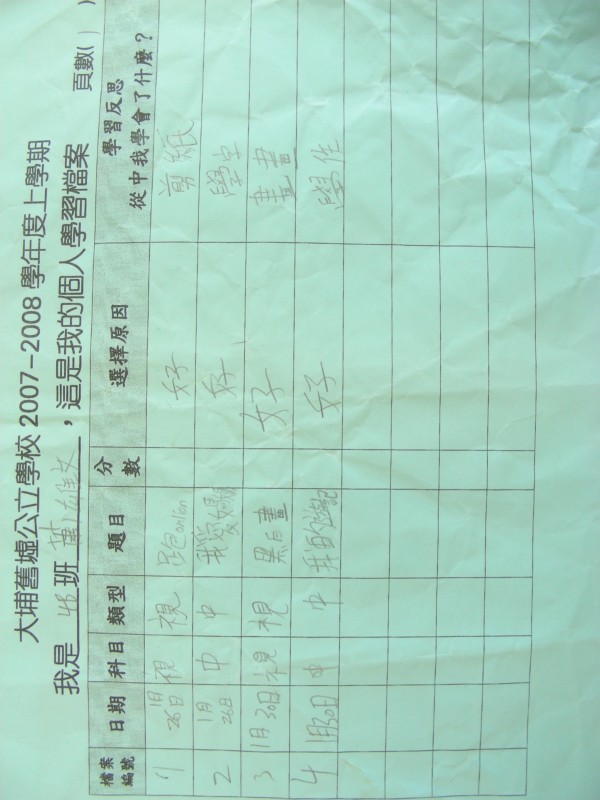 大埔舊墟公立學校 2007-2008 學年度上學期
我是 4B 班 葉雄文 ，這是我的個人學習檔案 頁數( 1 )
檔案編號 日期 科目 類型 題目 分數 選擇原因 學習反思 從中我學會了什麼？
1 1月26日 視 視 好 剪紙
2 1月26日 中 中 我愛媽媽 好 學生
3 1月30日 視 視 黑白畫 好 畫畫
4 1月30日 中 中 好 學作